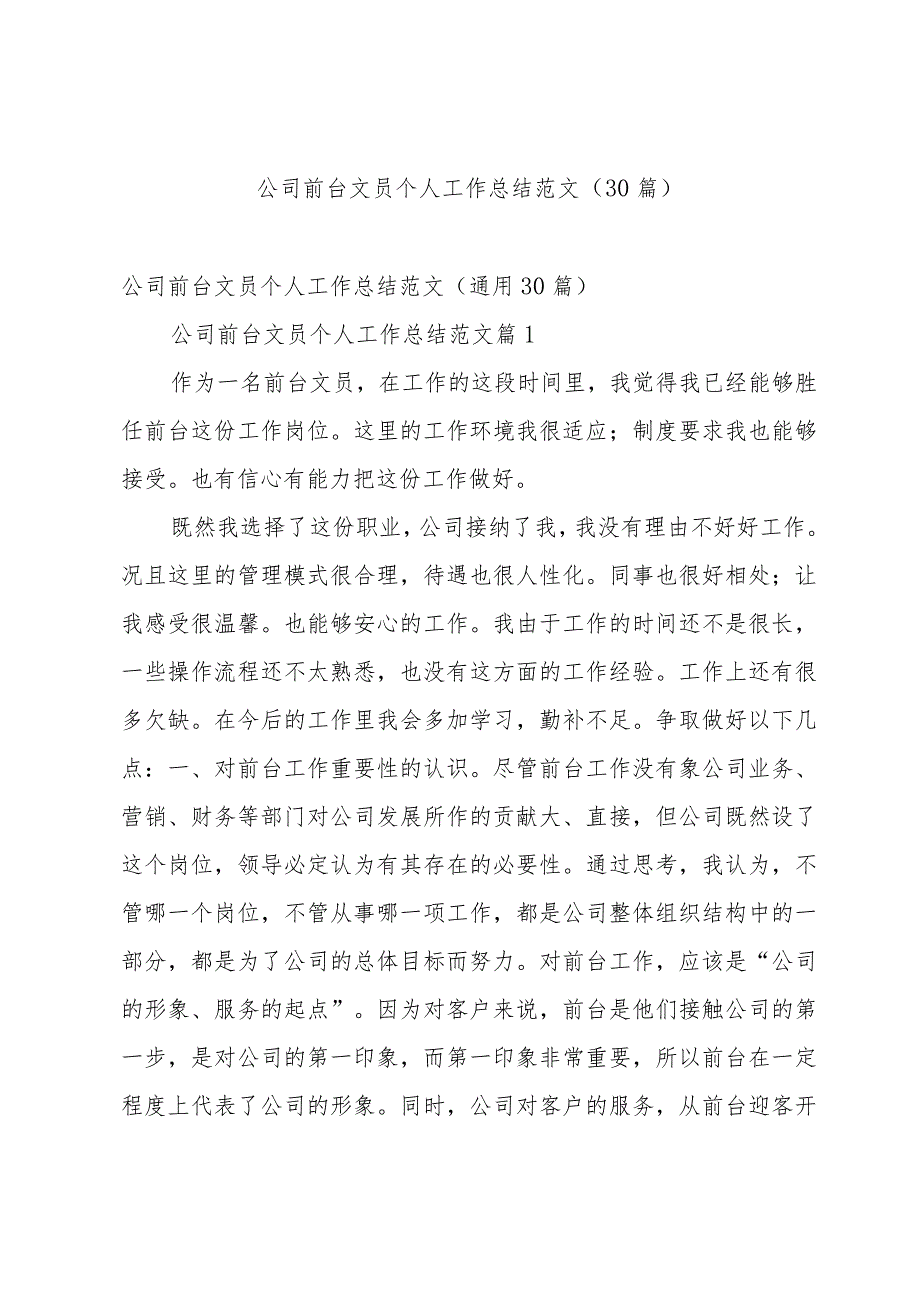 公司前台文员个人工作总结范文（30 篇）
公司前台文员个人工作总结范文（通用 30 篇）
公司前台文员个人工作总结范文篇 1
作为一名前台文员，在工作的这段时间里，我觉得我已经能够胜
任前台这份工作岗位。这里的工作环境我很适应；制度要求我也能够
接受。也有信心有能力把这份工作做好。
既然我选择了这份职业，公司接纳了我，我没有理由不好好工作。
况且这里的管理模式很合理，待遇也很人性化。同事也很好相处；让
我感受很温馨。也能够安心的工作。我由于工作的时间还不是很长，
一些操作流程还不太熟悉，也没有这方面的工作经验。工作上还有很
多欠缺。在今后的工作里我会多加学习，勤补不足。争取做好以下几
点：一、对前台工作重要性的认识。尽管前台工作没有象公司业务、
营销、财务等部门对公司发展所作的贡献大、直接，但公司既然设了
这个岗位，领导必定认为有其存在的必要性。通过思考，我认为，不
管哪一个岗位，不管从事哪一项工作，都是公司整体组织结构中的一
部分，都是为了公司的总体目标而努力。对前台工作，应该是“公司
的形象、服务的起点”。因为对客户来说，前台是他们接触公司的第
一步，是对公司的第一印象，而第一印象非常重要，所以前台在一定
程度上代表了公司的形象。同时，公司对客户的服务，从前台迎客开